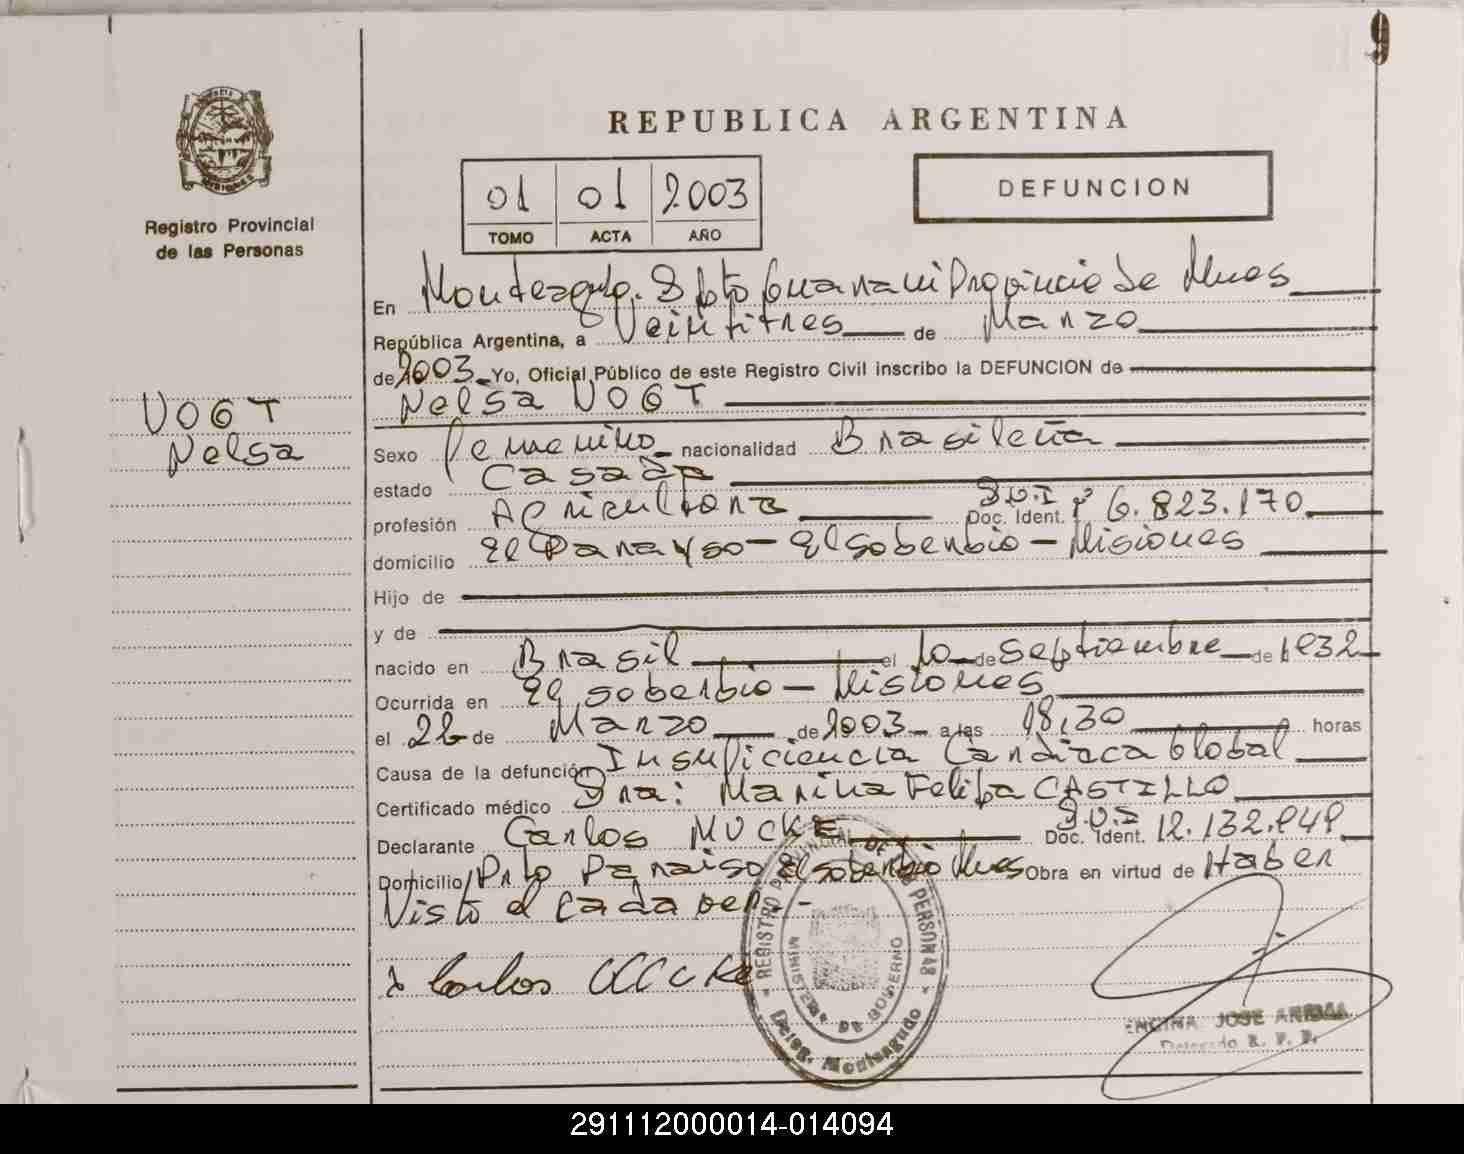 9
REPUBLICA ARGENTINA
MISIONES
Registro Provincial
de las Personas
01 01 2003
TOMO ACTA AÑO
DEFUNCION
En Monteagudo. Dpto Guarani Provincia de Mnes
República Argentina, a Veintitres de Marzo
de 2003 Yo, Oficial Público de este Registro Civil inscribo la DEFUNCION de
Nelsa VOGT
VOGT
Nelsa
Sexo Femenino nacionalidad Brasileña
estado Casada
profesión Agricultora D.N.I Doc. Ident. Nº 6.823.170
domicilio El Parayso - El soberbio - Misiones
Hijo de
y de
nacido en Brasil el 10 de Septiembre de 1932
Ocurrida en El soberbio - Misiones
el 22 de Marzo de 2003 a las 18,30 horas
Causa de la defunción Insuficiencia Cardiaca Global
Certificado médico Dra: Marina Felipa CASTILLO
Declarante Carlos MUCKE D.N.I Doc. Ident. 12.132.949
Domicilio Pto Paraiso El soberbio Mnes Obra en virtud de Haber
Visto el cadaver.-
x Carlos Mucke
REGISTRO PROVINCIAL DE LAS PERSONAS
MINISTERIO DE GOBIERNO
Deleg. Monteagudo
ENCINA JOSE ANIBAL
Delegado R. P. P.
291112000014-014094